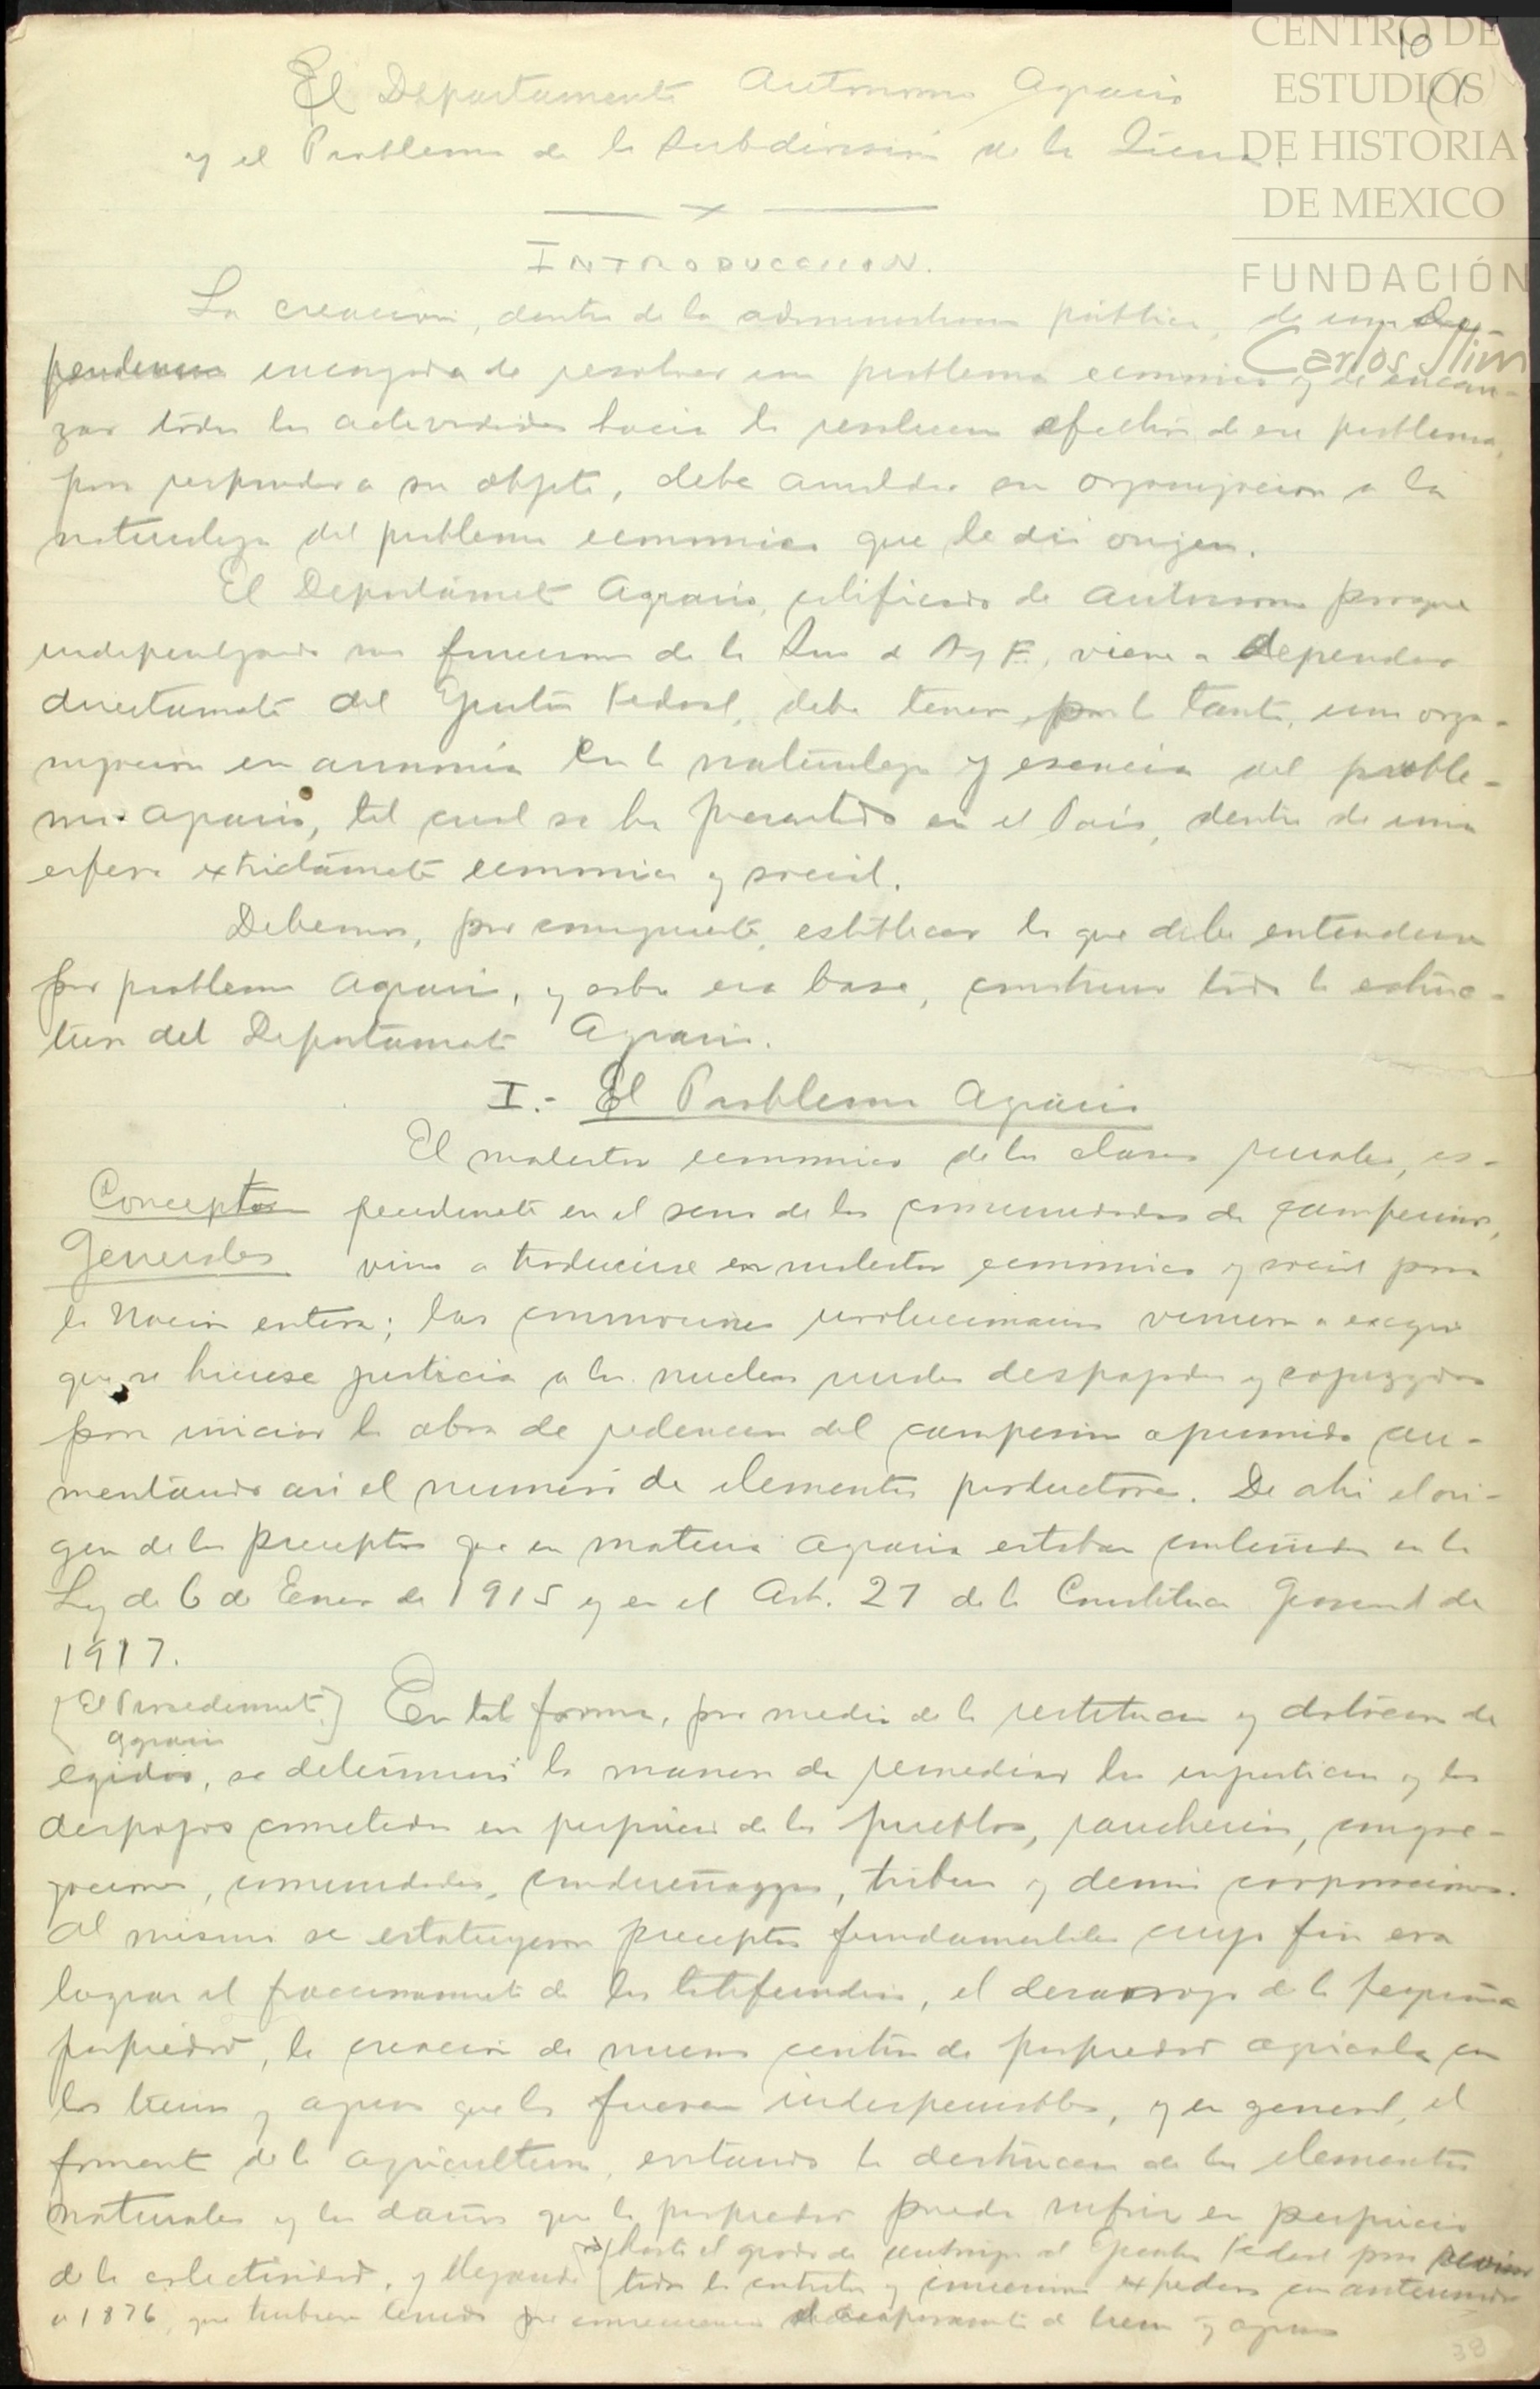 CENTRO DE
ESTUDIOS
DE HISTORIA
DE MEXICO
FUNDACIÓN
Carlos Slim
10
El Departamento Autonomo Agrario
y el Problema de la Subdivisión de la Tierra.
INTRODUCCION.
La creacion, dentro de la administracion pública, de una De-
pendencia encargada de resolver un problema economico y de encau-
zar todas las actividades hacia la resolucion efectiva de ese problema,
para responder a su objeto, debe amoldar su organizacion a la
naturaleza del problema economico que le dió origen.
El Departamento Agrario, calificado de autonomo porque
independizando sus funciones de la Sria de A y F., viene a depender
directamente del Ejecutivo Federal, debe tener, por lo tanto, una orga-
nizacion en armonía con la naturaleza y esencia del proble-
ma agrario, tal cual se ha presentado en el País, dentro de una
esfera extrictamente economica y social.
Debemos, por consiguiente, establecer lo que debe entenderse
por problema agrario, y sobre esa base, construir toda la estruc-
tura del Departamento Agrario.
I.- El Problema Agrario
El malestar economico de las clases rurales, es-
Conceptos pecialmente en el seno de las comunidades de campesinos,
Generales vino a traducirse en malestar economico y social para
la Nación entera; las conmociones revolucionarias vinieron a exigir
que se hiciese justicia a los nucleos rurales despojados y
para iniciar la obra de redencion del campesino oprimido au-
mentando asi el numero de elementos productores. De ahi el ori-
gen de los preceptos que en materia agraria estaban contenidos en la
Ley de 6 de Enero de 1915 y en el Art. 27 de la Constitucion General de
1917.
[El Procedimiento Agrario] En tal forma, por medio de la restitucion y dotacion de
egidos, se determinó la manera de remediar las injusticias y los
despojos cometidos en perjuicio de los pueblos, rancherias, congre-
gaciones, comunidades, condueñazgos, tribus y demás corporaciones.
Al mismo se estatuyeron preceptos fundamentales cuyo fin era
lograr el fraccionamiento de los latifundios, el desarrollo de la pequeña
propiedad, la creación de nuevos centros de propiedad agricola con
las tierras y aguas que les fueran indispensables, y en general, el
fomento de la agricultura, evitando la destruccion de los elementos
naturales y los daños que la propiedad pueda sufrir en perjuicio
de la colectividad, y llegando hasta el grado de autorizar al Ejecutivo Federal para revisar
todos los contratos y concesiones expedidos con anterioridad
a 1876, que hubieran tenido por consecuencia el acaparamiento de tierras y aguas
38